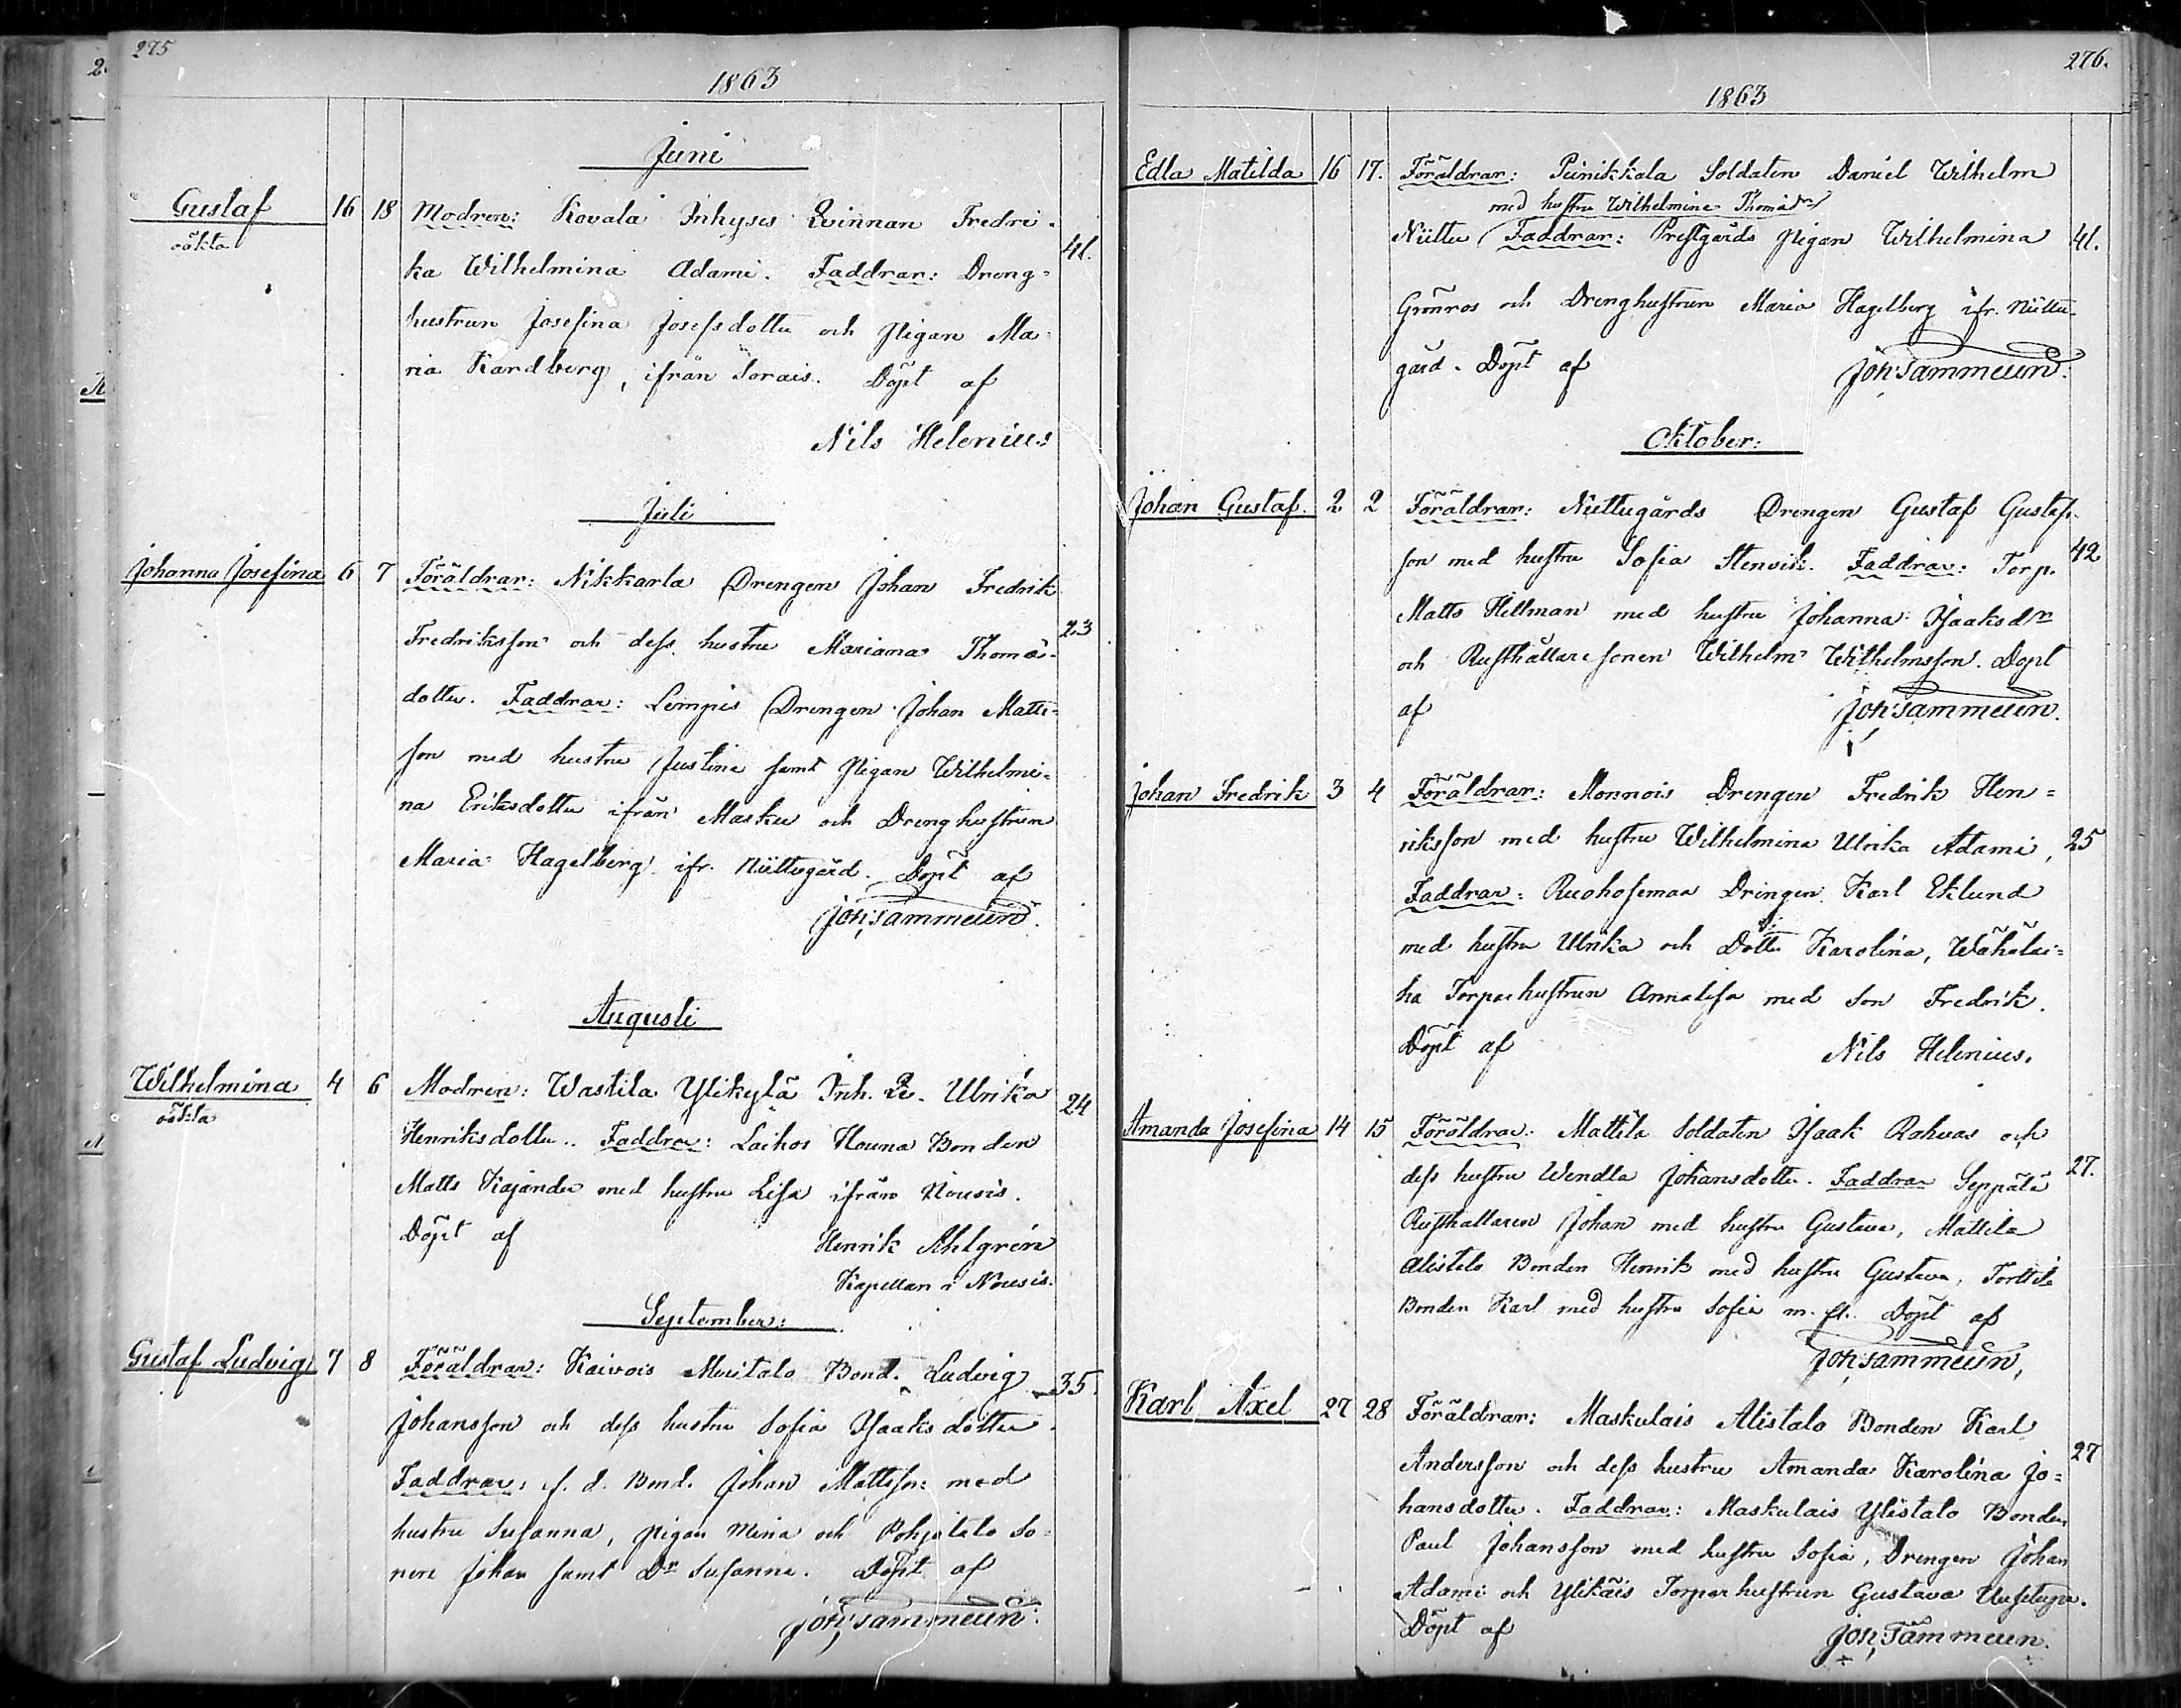 275
1863
Juni
Gustaf 16 18 Modren: Kovala Inhyses Qvinnan Fredri-
oäkta
ka Wilhelmina Adami. Faddrar: Dreng= 41.
hustrun Josefina Josefsdotter och Pigan Ma-
ria Kardberg, ifrån Sorais. Döpt af
Nils Helenius
Juli
Johanna Josefina 6 7 Föräldrar: Nikkarla Drengen Johan Fredrik
Fredriksson och dess hustru Mariana Thomä- 23
dotter. Faddrar: Lempis Drengen Johan Matts=
son med hustru Justina samt Pigan Wilhelmi=
na Eriksdotter ifrån Masku och Drenghustrun
Maria Hagelberg ifr. Niittugård. Döpt af
Joh. Tammelin.
Augusti
Wilhelmina 4 6 Modren: Wastila Ylikylä Inh. Q. Ulrika 24
oäkta
Henriksdotter. Faddrar: Laihos Nouna Bonden
Matts Kajander med hustru Lisa ifrån Nousis.
Döpt af Henrik Ahlgrén
Kapellan i Nousis.
September:
Gustaf Ludvig 7 8 Föräldrar: Kaivois Uusitalo Bond. Ludvig 35.
Johansson och dess hustru Sofia Isaaksdotter.
Faddrar: f. d. Bond. Johan Mattsson med
hustru Susanna, pigan Mina och Pohjitalo So-
nen Johan samt Dr Susanna. Döpt af
Joh. Tammelin.
276.
1863
Edla Matilda 16 17. Föräldrar: Piinikkala Soldaten Daniel Wilhelm
med hustru Wilhelmina Thomädr
Niittu Faddrar: Prestgårds Pigan Wilhelmina 41.
Grönros och Drenghustrun Maria Hagelberg ifr. Niittu-
gård. Döpt af Joh. Tammelin.
Oktober:
Johan Gustaf. 2 2 Föräldrar: Niittugårds Drengen Gustaf Gustafs-
son med hustru Sofia Stenvik. Faddrar: Torp. 42
Matts Hillman med hustru Johanna Isaaksdr
och Rusthållaresonen Wilhelm Wilhelmsson. Döpt
af Joh. Tammelin.
Johan Fredrik 3 4 Föräldrar: Monnois Drengen Fredrik Hen=
riksson med hustru Wilhelmina Ulrika Adami, 25
Faddrar: Ruohosemaa Drengen Karl Eklund
med hustru Ulrika och Dotter Karolina, Wähälai=
ha Torparhustrun Annalisa med Son Fredrik.
Döpt af Nils Helenius.
Amanda Josefina 14 15 Föräldrar: Mattila Soldaten Isaak Rahvas och
dess hustru Wendla Johansdotter. Faddrar Seppälä 27.
Rusthallaren Johan med hustru Gustava, Mattila
Alistalo Bonden Henrik med hustru Gustava, Torttila
Bonden Karl med hustru Sofia m. fl. Döpt af
Joh. Tammelin,
Karl Axel 27 28 Föräldrar: Maskulais Alistalo Bonden Karl
Andersson och dess hustru Amanda Karolina Jo= 27
hansdotter. Faddrar: Maskulais Ylistalo Bonden
Paul Johansson med hustru Sofia, Drengen Johan
Adami och Ylikäis Torparhustrun Gustava
Döpt af Joh. Tammelin.